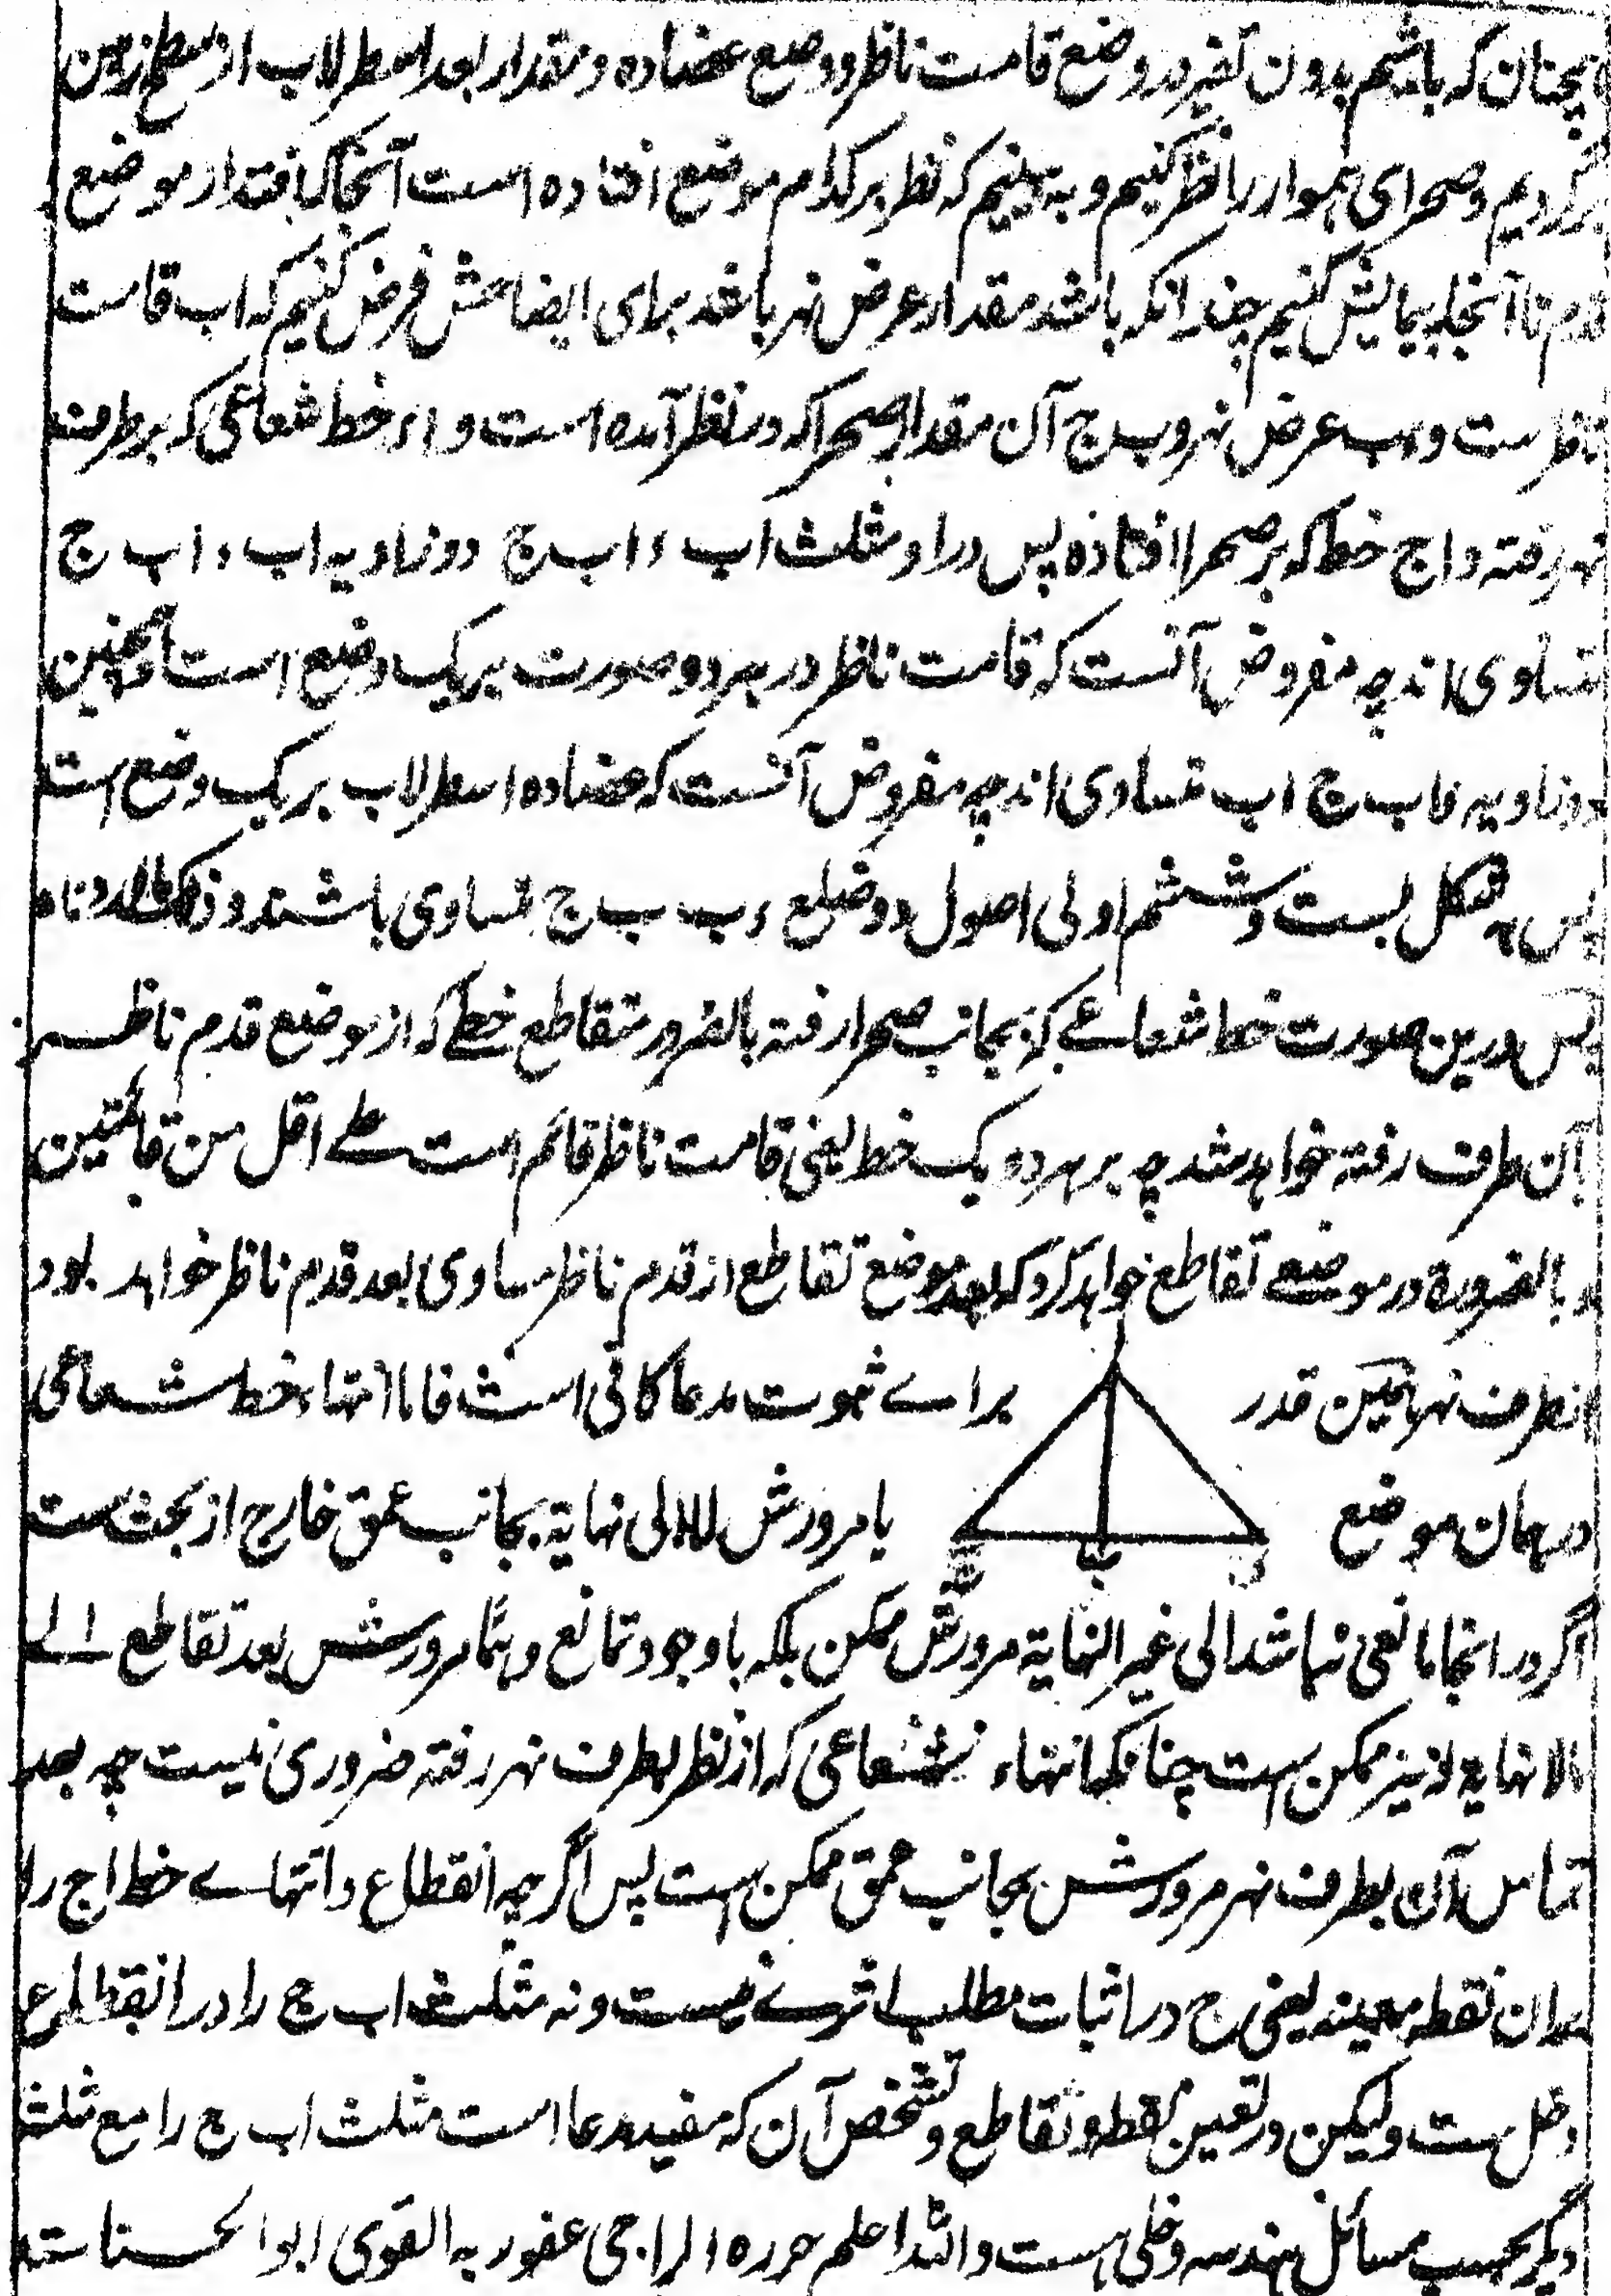 ہمچنان کہ باشیم بدون تغیر در وضع قامت ناظر و وضع عضادہ و مقدار بعد اسطرلاب از سطح زمین
برگردیم و صحرای ہموار را نظر کنیم و بہ بینیم کہ نظر بر کدام موضع افتادہ است آنجا کہ افتد از موضع
قدم تا آنجا پیمایش کنیم چندانکہ باشد مقدار عرض نہر باشد برای ایضاحش فرض کنیم کہ اب قامت
ناظرست و ءب عرض نہر و ب ج آن مقدار صحرا کہ در نظر آمدہ است و اء خط شعاعی کہ بر طرف
نہر رفتہ و اج خطے کہ بر صحرا افتادہ پس در او مثلث اب ء اب ج دو زاویہ اب ء اب ج
متساوی اند چہ مفروض آنست کہ قامت ناظر در ہر دو صورت بر یک وضع است و ہمچنین
دو زاویہ ءاب ج اب متساوی اند چہ مفروض آنست کہ عضادہ اسطرلاب بر یک وضع است
پس بشکل بست و ششم اولی اصول دو ضلع ءب ب ج متساوی باشند و ذلک ما اردناہ
پس درین صورت خط شعاعے کہ بجانب صحرا رفتہ بالضرور متقاطع خطے کہ از موضع قدم ناظر
بآن طرف رفتہ خواہد شد چہ بر ہر دو یک خط یعنی قامت ناظر قائم است علے اقل من قائمتین
و بالضرورۃ در موضعے تقاطع خواہد کرد کہ بعد موضع تقاطع از قدم ناظر مساوی بعد قدم ناظر خواہد بود
انطرف نہر ہمین قدر براے ثبوت مدعا کافی است فاما انتہاء خط شعاعی
در ہمان موضع یا مرورش لا الی نہایۃ بجانب عمق خارج از بحث ست
اگر در انجا مانعی نباشد الی غیر النہایۃ مرورش ممکن بلکہ با وجود تمانع وہما مرورش بعد تقاطع الے
مالا نہایۃ لہ نیز ممکن است چنانکہ انتہاء شعاعی کہ از نظر بطرف نہر رفتہ ضروری نیست چہ بعد
تماس آن بطرف نہر مرورش بجانب عمق ممکن ست پس اگرچہ انقطاع و انتہاے خط اج را
بران نقطہ معینہ یعنی ج در اثبات مطلب اثرے نیست و نہ مثلث اب ج را در انقطاع
دخل ست ولیکن در تعین نقطہ تقاطع و تشخص آن کہ مفید مدعا است مثلث اب ج را مع مثلث
دیگر بحسب مسائل ہندسہ دخلی ہست واللہ اعلم حررہ الراجی عفو ربہ القوی ابو الحسنات